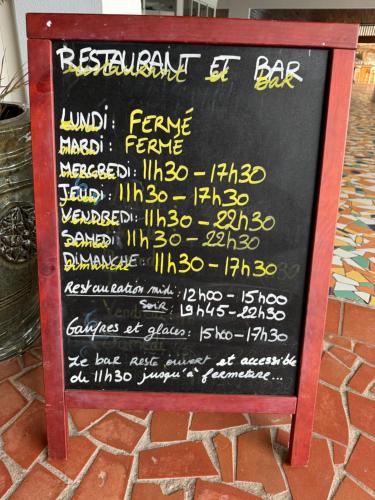 RESTAURANT ET BAR
LUNDI: FERMÉ
MARDI: FERMÉ
MERCREDI: 11h30 - 17h30
JEUDI: 11h30 - 17h30
VENDREDI: 11h30 - 22h30
SAMEDI 11h30 - 22h30
DIMANCHE: 11h30 - 17h30
Restauration midi: 12h00 - 15h00
Soir: 19h45 - 22h30
Gaufres et glaces: 15h00 - 17h30
Le bar reste ouvert et accessible
de 11h30 jusqu'à fermeture...